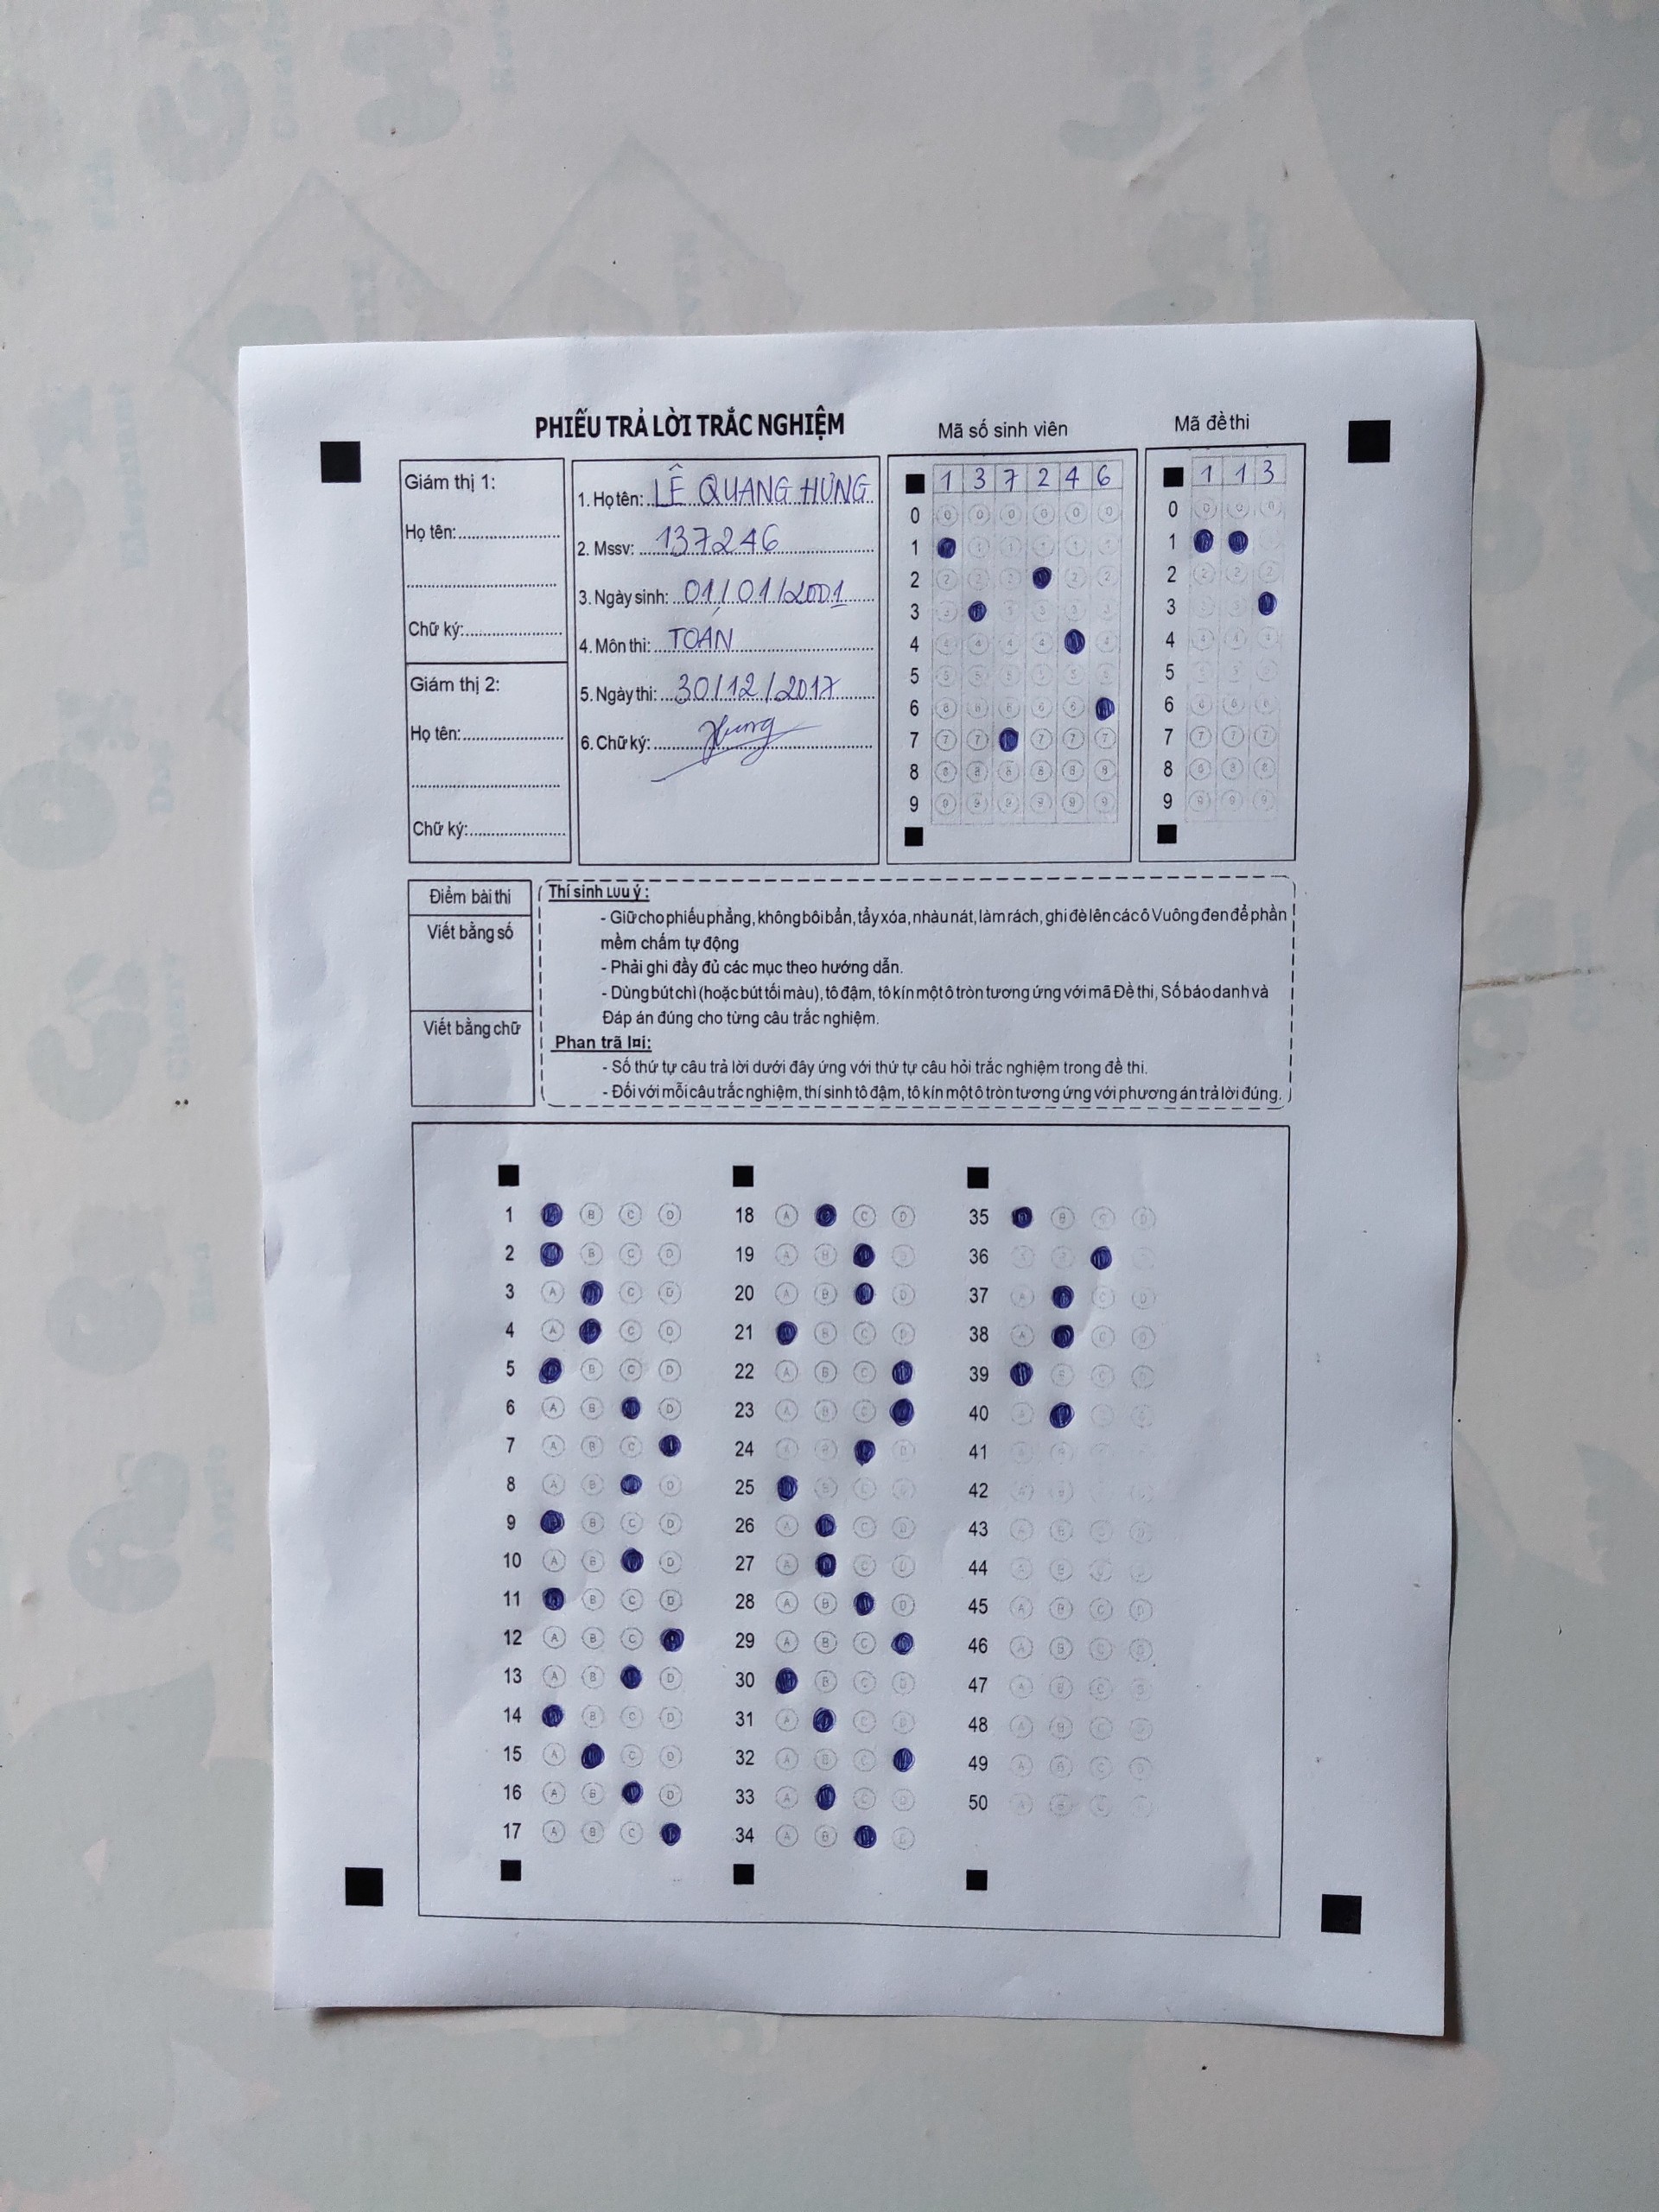 PHIẾU TRẢ LỜI TRẮC NGHIỆM
Mã số sinh viên
Mã đề thi
Giám thị 1:
Họ tên:
Chữ ký:
Giám thị 2:
Họ tên:
Chữ ký:
1. Họ tên: LÊ QUANG HƯNG
2. Mssv: 137246
3. Ngày sinh: 01/01/2001
4. Môn thi: TOÁN
5. Ngày thi: 30/12/2017
6. Chữ ký: Hung
1 3 7 2 4 6
0
1
2
3
4
5
6
7
8
9
1 1 3
0
1
2
3
4
5
6
7
8
9
Điểm bài thi
Viết bằng số
Viết bằng chữ
Thí sinh Lưu ý:
- Giữ cho phiếu phẳng, không bôi bẩn, tẩy xóa, nhàu nát, làm rách, ghi đè lên các ô Vuông đen để phần
mềm chấm tự động
- Phải ghi đầy đủ các mục theo hướng dẫn.
- Dùng bút chì (hoặc bút tối màu), tô đậm, tô kín một ô tròn tương ứng với mã Đề thi, Số báo danh và
Đáp án đúng cho từng câu trắc nghiệm.
Phan trã lại:
- Số thứ tự câu trả lời dưới đây ứng với thứ tự câu hỏi trắc nghiệm trong đề thi.
- Đối với mỗi câu trắc nghiệm, thí sinh tô đậm, tô kín một ô tròn tương ứng với phương án trả lời đúng.
1 B C D
2 B C D
3 A C D
4 A C D
5 B C D
6 A B D
7 A B C
8 A B D
9 B C D
10 A B D
11 B C D
12 A B C
13 A B D
14 B C D
15 A C D
16 A B D
17 A B C
18 A C D
19 A B D
20 A B D
21 B C D
22 A B C
23 A B C
24 A B D
25 B C D
26 A C D
27 A C D
28 A B D
29 A B C
30 B C D
31 A C D
32 A B C
33 A C D
34 A B D
35 B C D
36
37 A C D
38 A C D
39 B C D
40
41
42
43 A B C D
44
45 A B C D
46 A B C D
47 A B C D
48 A B C D
49 A B C D
50 A B C